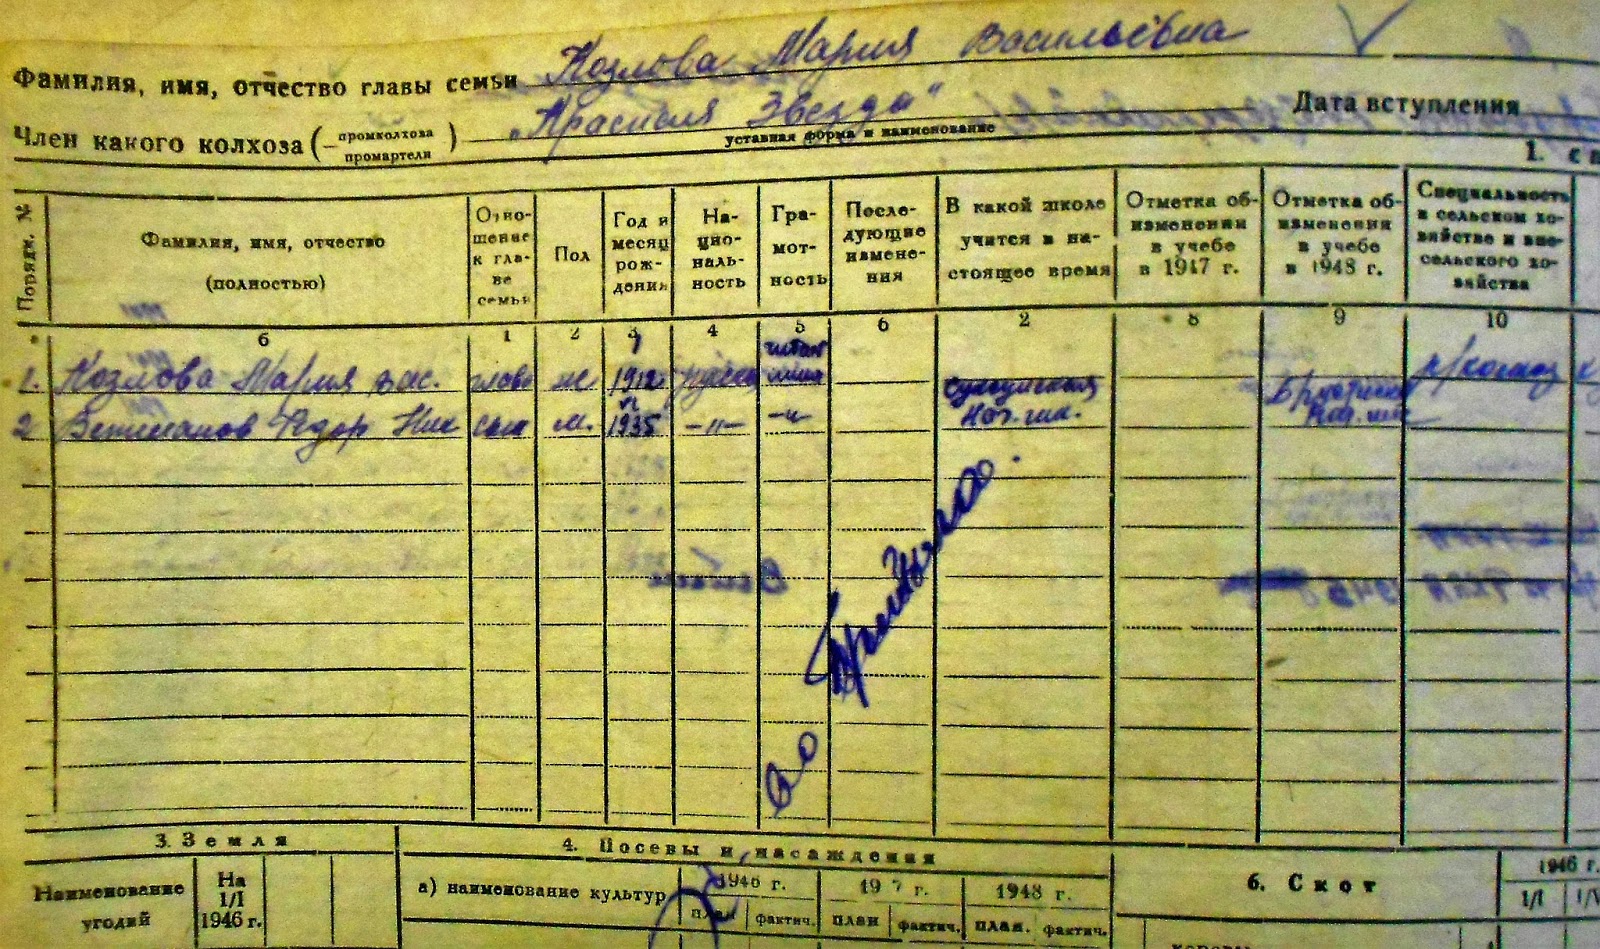 Козлова Мария Васильевна
Фамилия, имя, отчество главы семьи
"Красная Звезда"
Дата вступления
Член какого колхоза (промколхоза промартели)
уставная форма и наименование
1. сп
Порядк. №
Фамилия, имя, отчество (полностью)
Отношение к главе семьи
Пол
Год и месяц рождения
Национальность
Грамотность
Последующие изменения
В какой школе учится в настоящее время
Отметка об изменении в учебе в 1947 г.
Отметка об изменения в учебе в 1948 г.
Специальность в сельском хозяйстве и вне сельского хозяйства
6 1 2 3 4 5 6 2 8 9 10
1. Козлова Мария Вас. глава ж 1912
2 Федор Ник сын м. 1935 -"- -"- нач. шк.
3. Земля
4. Посевы и насаждения
6. Скот
1946 г.
1/I
Наименование угодий
На 1/I 1946 г.
а) наименование культур
1946 г. 19 7 г. 1948 г.
план фактич. план фактич. план. фактич.